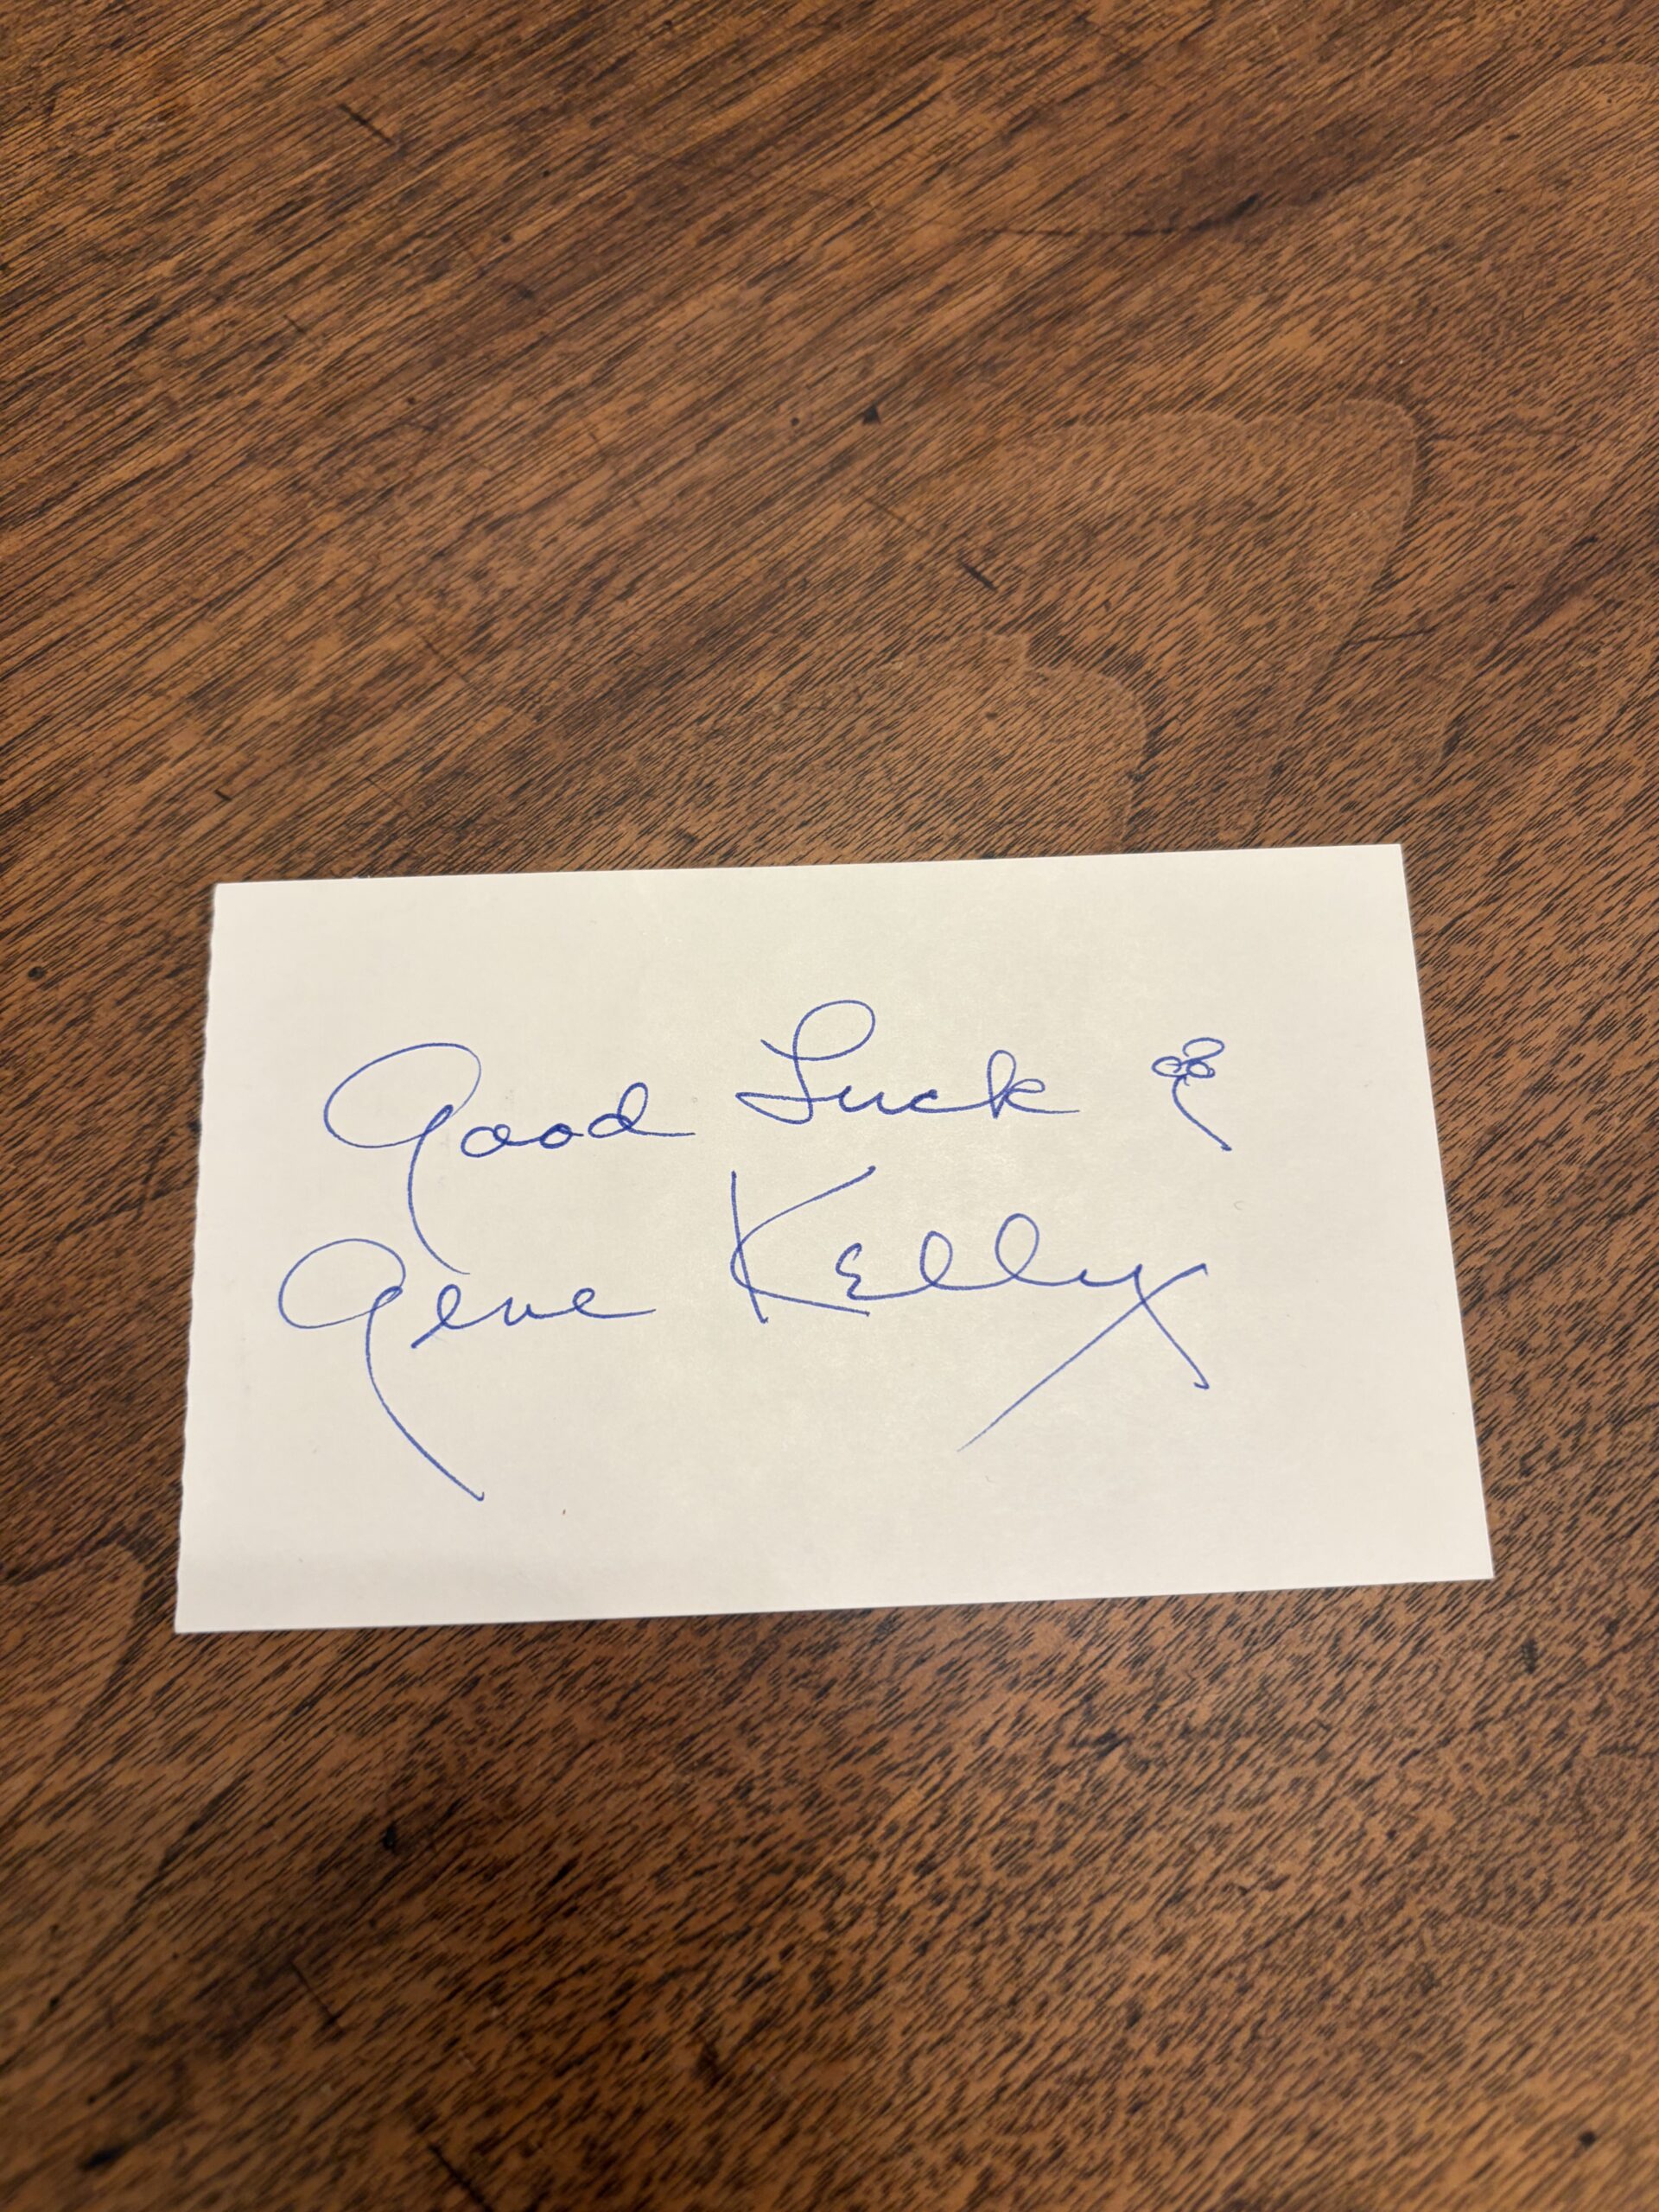 Good Luck
Gene Kelly